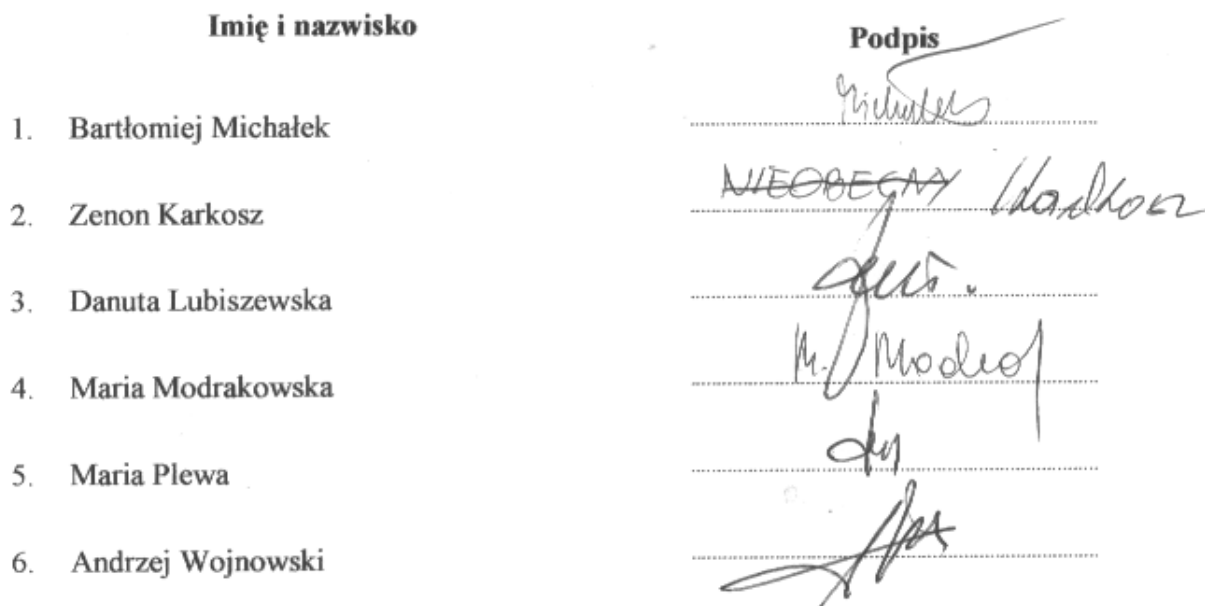 Imię i nazwisko Podpis
1. Bartłomiej Michałek Michałek
2. Zenon Karkosz NIEOBECNY Karkosz
3. Danuta Lubiszewska
4. Maria Modrakowska M.
5. Maria Plewa
6. Andrzej Wojnowski